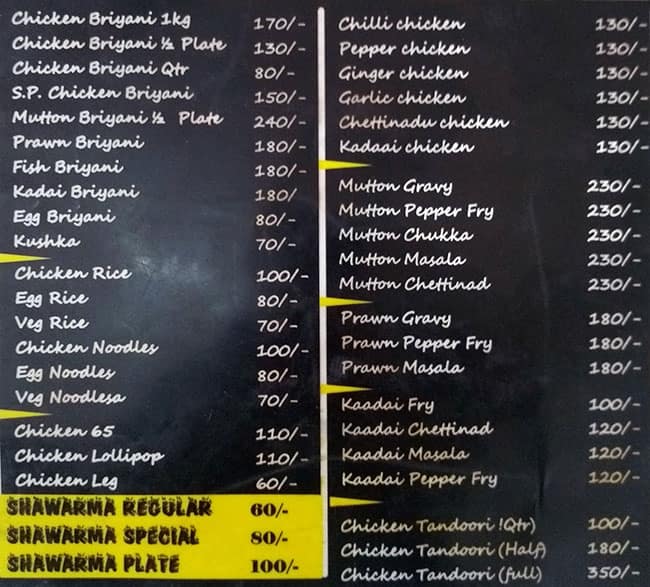 Chicken Briyani 1kg 170/-
Chicken Briyani ½ Plate 130/-
Chicken Briyani Qtr 80/-
S.P. Chicken Briyani 150/-
Mutton Briyani ½ Plate 240/-
Prawn Briyani 180/-
Fish Briyani 180/-
Kadai Briyani 180/
Egg Briyani 80/-
Kushka 70/-
Chicken Rice 100/-
Egg Rice 80/-
Veg Rice 70/-
Chicken Noodles 100/-
Egg Noodles 80/-
Veg Noodlesa 70/-
Chicken 65 110/-
Chicken Lollipop 110/-
Chicken Leg 60/-
SHAWARMA REGULAR 60/-
SHAWARMA SPECIAL 80/-
SHAWARMA PLATE 100/-
Chilli chicken 130/-
Pepper chicken 130/-
Ginger chicken 130/-
Garlic chicken 130/-
Chettinadu chicken 130/-
Kadaai chicken 130/-
Mutton Gravy 230/-
Mutton Pepper Fry 230/-
Mutton Chukka 230/-
Mutton Masala 230/-
Mutton Chettinad 230/-
Prawn Gravy 180/-
Prawn Pepper Fry 180/-
Prawn Masala 180/-
Kaadai Fry 100/-
Kaadai Chettinad 120/-
Kaadai Masala 120/-
Kaadai Pepper Fry 120/-
Chicken Tandoori !Qtr) 100/-
Chicken Tandoori (Half) 180/-
Chicken Tandoori (full) 350/-